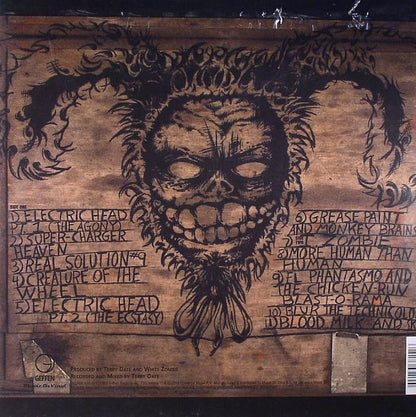 SIDE ONE
1) ELECTRIC HEAD
PT. 1 (THE AGONY)
2) SUPER-CHARGER
HEAVEN
3) REAL SOLUTION #9
4) CREATURE OF THE
WHEEL
5) ELECTRIC HEAD
PT. 2 (THE ECSTASY)
6) GREASE PAINT
AND MONKEY BRAINS
I ZOMBIE
MORE HUMAN THAN
HUMAN
EL PHANTASMO AND
THE CHICKEN-RUN
BLAST-O-RAMA
BLUR THE TECHNICOLO
BLOOD MILK AND
GEFFEN
PRODUCED BY TERRY DATE AND WHITE ZOMBIE
RECORDED AND MIXED BY TERRY DATE